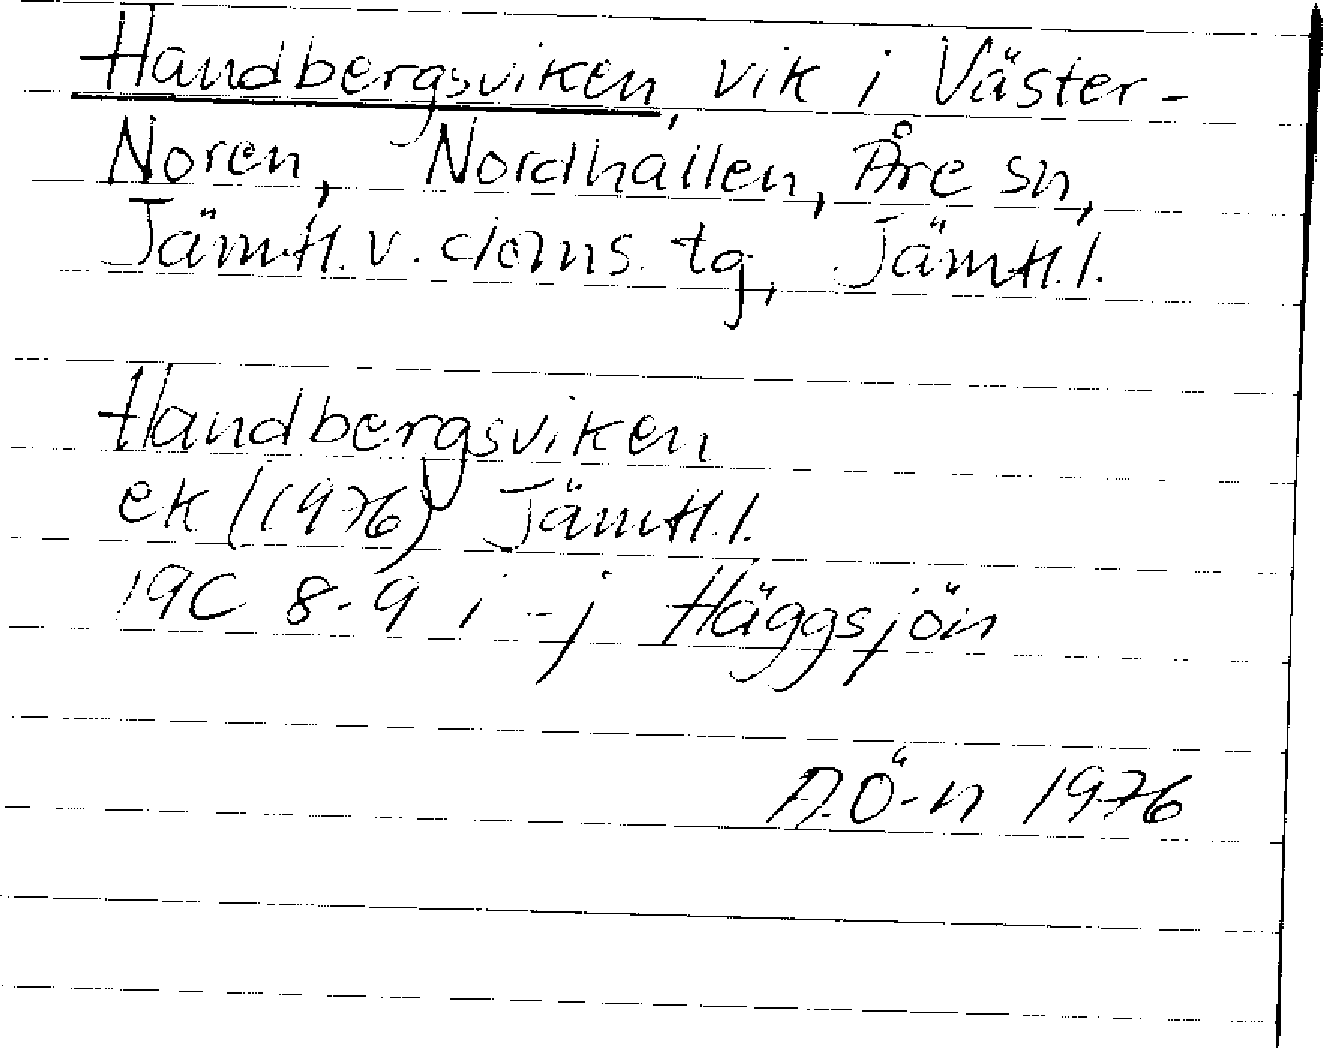 Handbergsviken, vik i Väster-
Noren, Nordhallen, Åre sn,
Jämtl. v. doms. tg, Jämtl. l.
Handbergsviken
ek (1976) Jämtl. l.
19C 8-9 i-j Häggsjön
A.Ö-n 1976